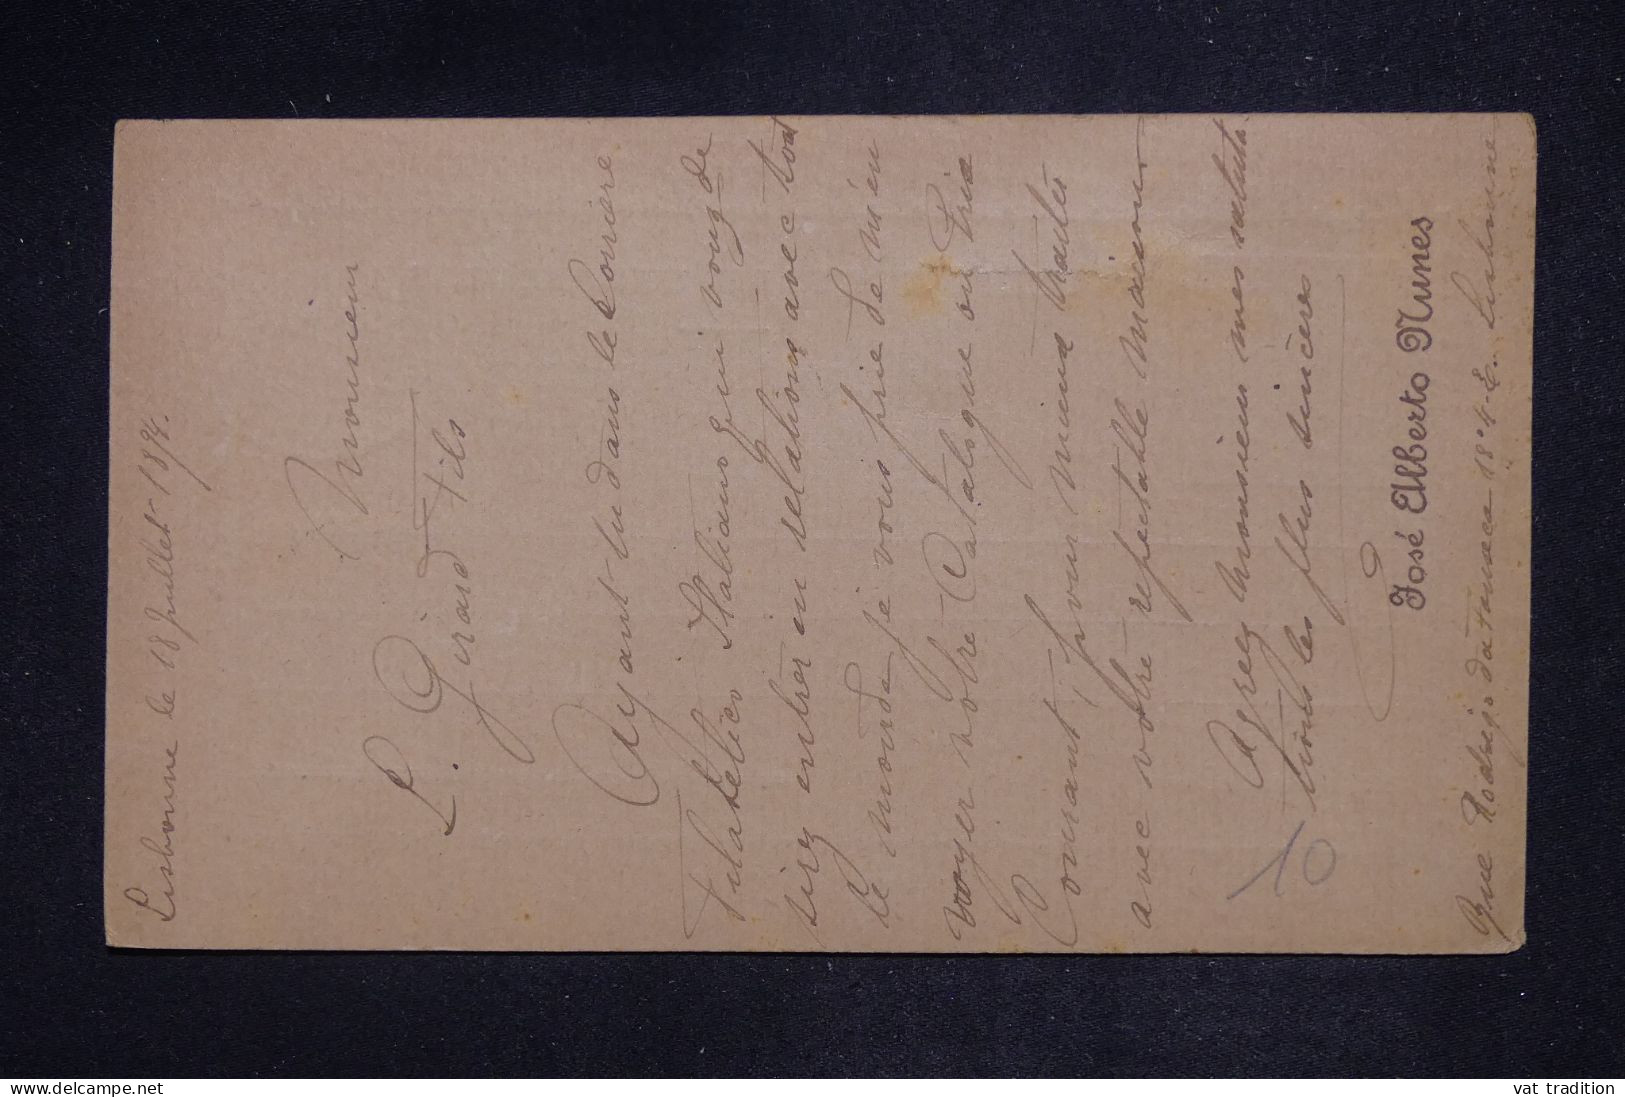 Lisbonne le 18 Juillet 189
Monsieur
L. Girard Fils
Ayant lu dans le Coriere
Filatelico Italiano qui vous de
sirez entrer en relations avec tout
le monde je vous prie de m'en
voyer votre Catalogue ou Prix
Courant, pour mieux traiter
avec votre respectable Maison
Agreez Monsieur mes saluta
tions les plus sincères
10
José Alberto Nunes
Rue Rodrigo da Fonseca 18 4. E. Lisbonne
www.delcampe.net
vat tradition